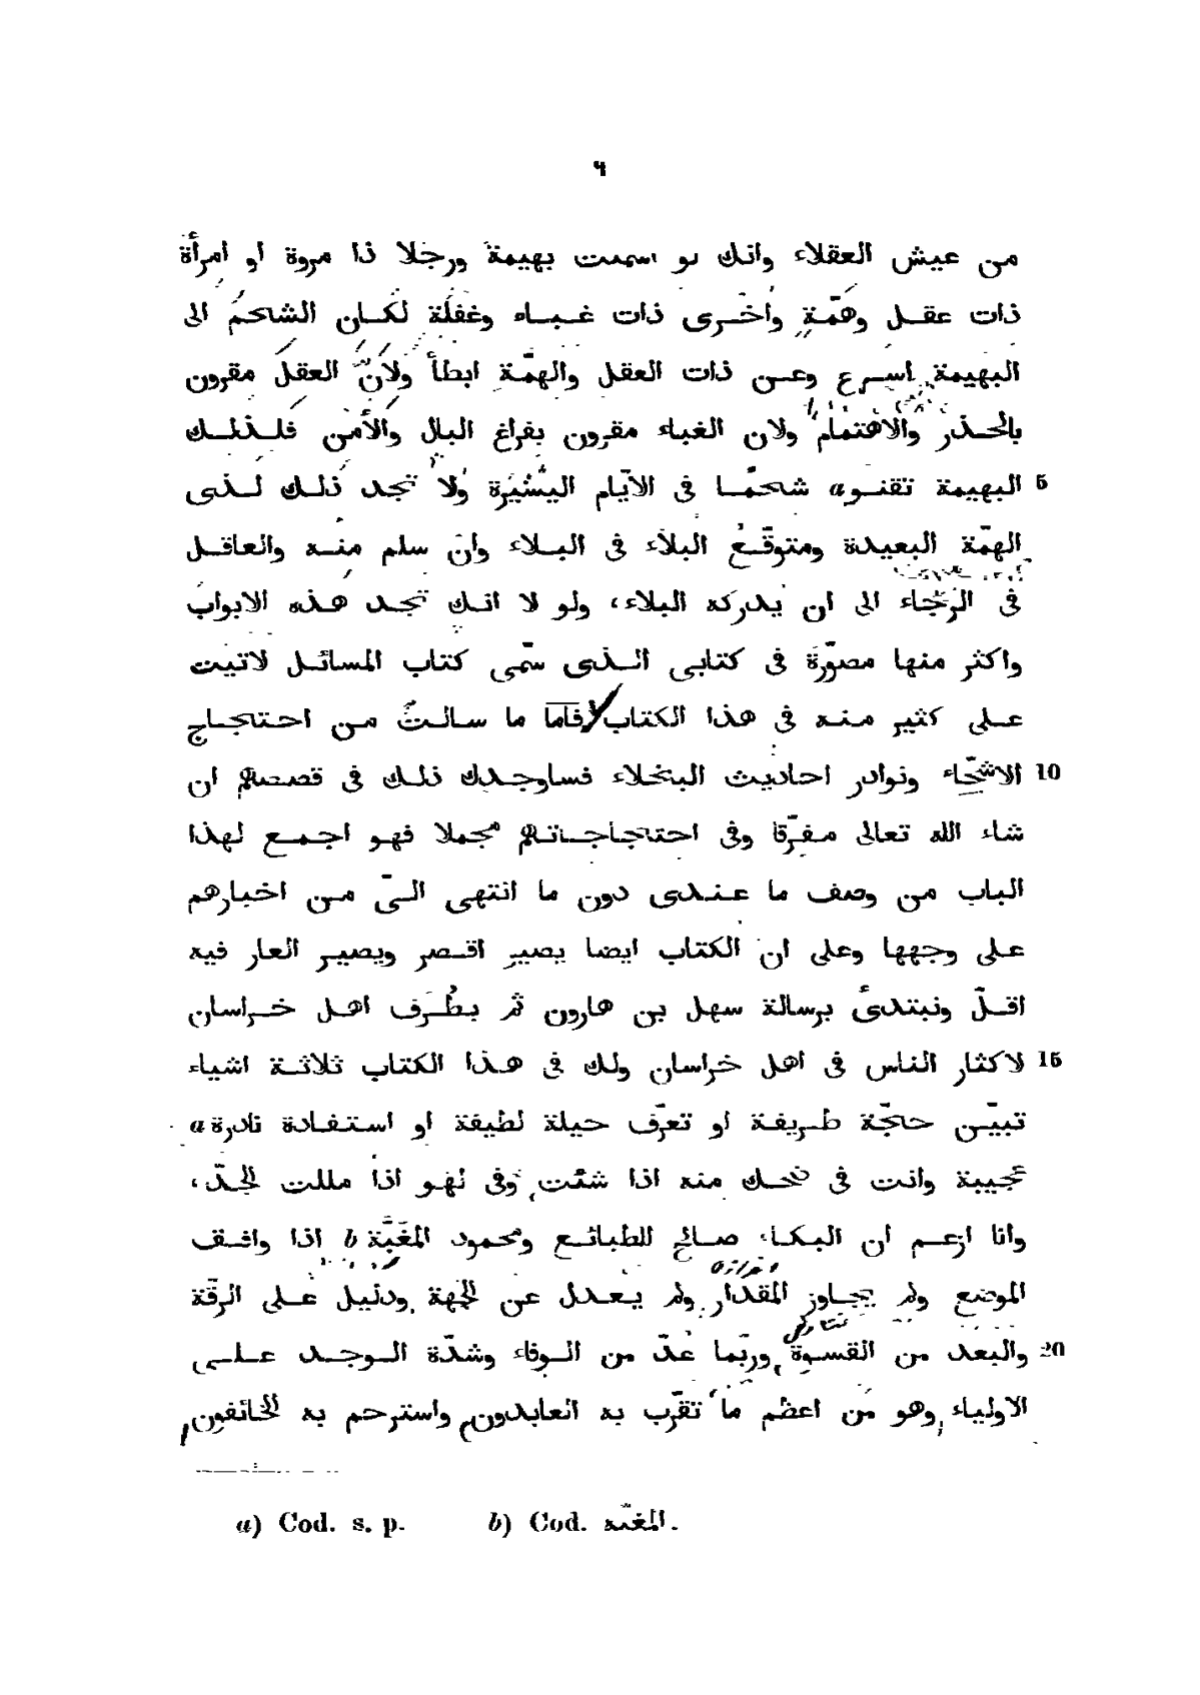 ٦
من عيش العقلاء وانك لو اسمنت بهيمة ورجلا ذا مروة او امرأة
ذات عقل وهمّة واخرى ذات غباء وغفلة لكان الشحم الى
البهيمة اسرع وعن ذات العقل والهمّة ابطأ ولانّ العقل مقرون
بالحذر والاهتمام ولان الغباء مقرون بفراغ البال والأمن فلذلك
5 البهيمة تقنو a شحمًا فى الايّام اليسيرة ولا تجد ذلك لذى
الهمّة البعيدة ومتوقّع البلاء فى البلاء وان سلم منه والعاقل
فى الرجاء الى ان يدركه البلاء، ولو لا انك تجد هذه الابواب
واكثر منها مصوّرة فى كتابى الذى سمّى كتاب المسائل لاتيت
على كثير منه فى هذا الكتاب فاما ما سالتَ من احتجاج
10 الاشحّاء ونوادر احاديث البخلاء فساوجدك ذلك فى قصصهم ان
شاء الله تعالى مفرّقا وفى احتجاجاتهم مجملا فهو اجمع لهذا
الباب من وصف ما عندى دون ما انتهى الىّ من اخبارهم
على وجهها وعلى ان الكتاب ايضا يصير اقصر ويصير العار فيه
اقلّ ونبتدئ برسالة سهل بن هارون ثم بطُرَف اهل خراسان
15 لاكثار الناس فى اهل خراسان ولك فى هذا الكتاب ثلاثة اشياء
تبيّن حاجّة طريفة او تعرّف حيلة لطيفة او استفادة نادرة a
عجيبة وانت فى ضحك منه اذا شئت وفى لهو اذا مللت الجدّ،
وانا ازعم ان البكاء صالح للطبائع ومحمود المغَبّة b اذا وافق
الموضع ولم يجاوز المقدار ولم يعدل عن الجهة ودليل على الرقّة
20 والبعد من القسوة وربّما عُدّ من الوفاء وشدّة الوجد على
الاولياء وهو من اعظم ما تقرّب به العابدون واسترحم به الخائفون
a) Cod. s. p. b) Cod.